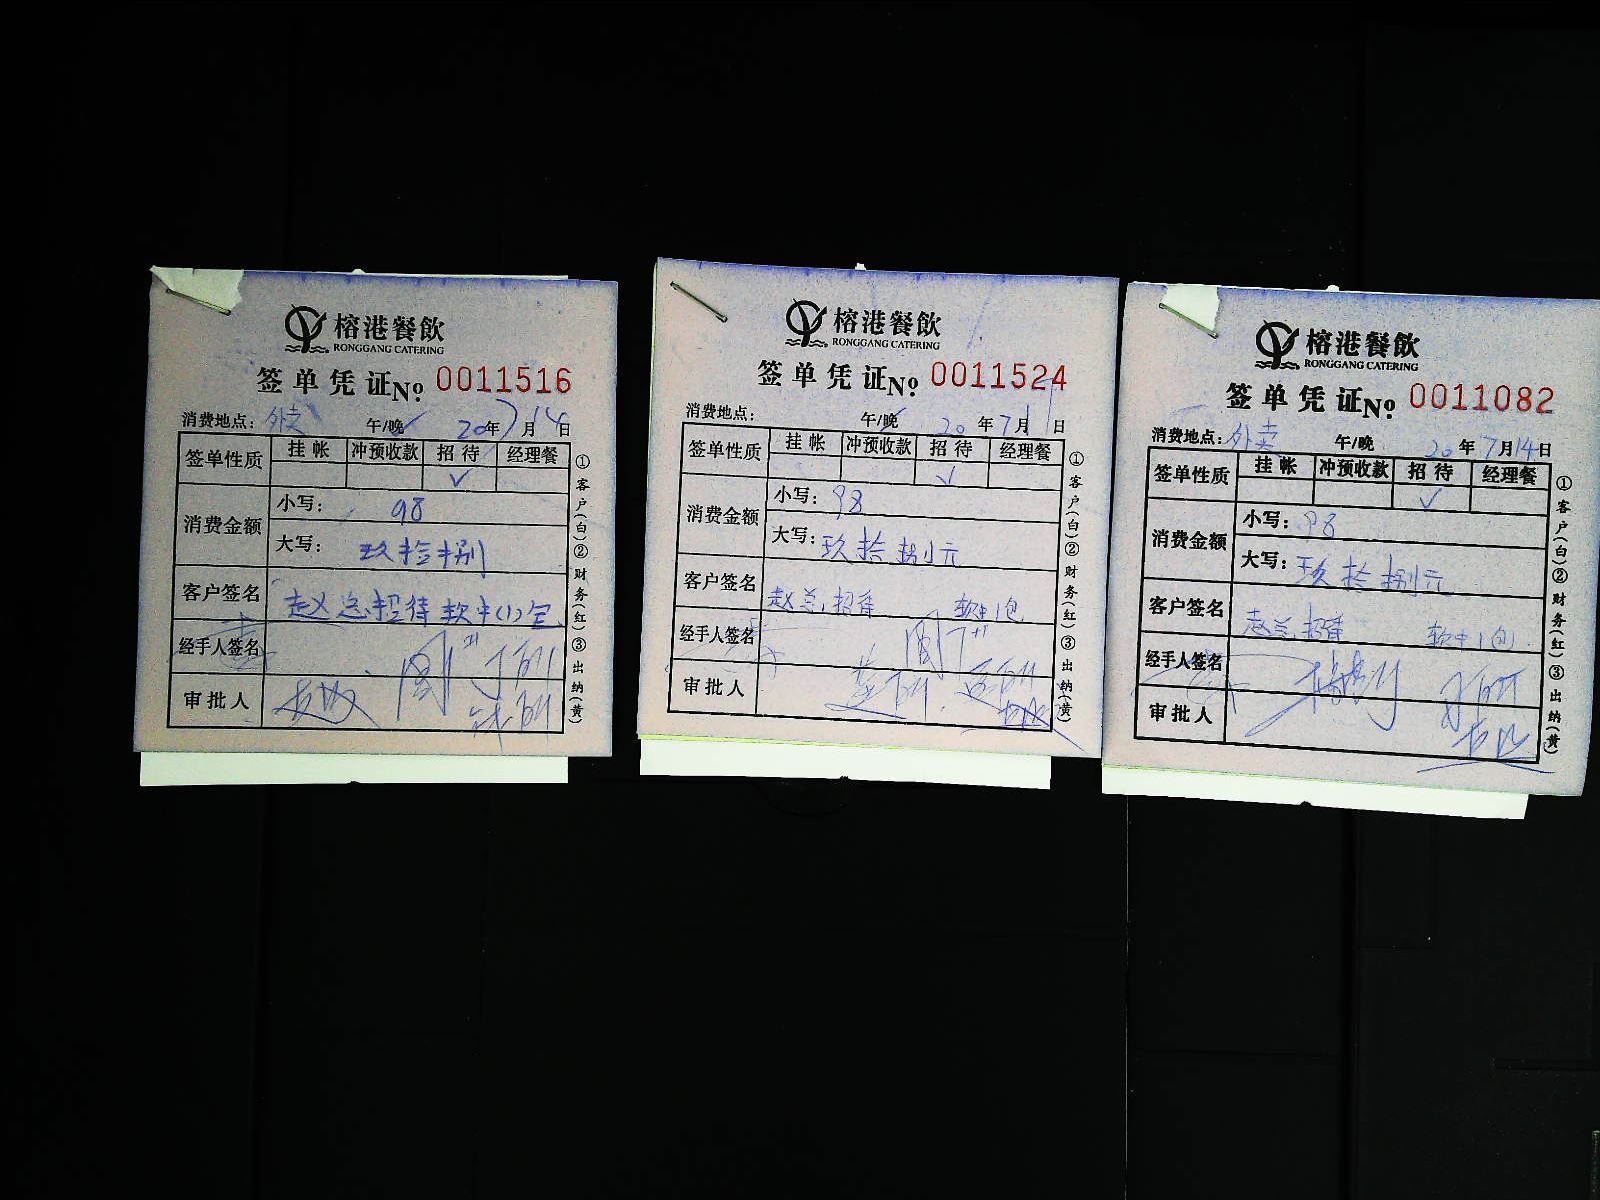 榕港餐飲
RONGGANG CATERING
签单凭证 No: 0011516
消费地点：外卖 午/晚 20年7月14日
签单性质 挂帐 冲预收款 招待 经理餐
✓
消费金额 小写：98
大写：玖拾捌
客户签名 赵总招待软中(1)包
经手人签名
审批人
①客户(白)②财务(红)③出纳(黄)
榕港餐飲
RONGGANG CATERING
签单凭证 No: 0011524
消费地点： 午/晚 20年7月1日
签单性质 挂帐 冲预收款 招待 经理餐
✓
消费金额 小写：98
大写：玖拾捌元
客户签名 赵总招待 软中1包
经手人签名
审批人
①客户(白)②财务(红)③出纳(黄)
榕港餐飲
RONGGANG CATERING
签单凭证 No: 0011082
消费地点：外卖 午/晚 20年7月14日
签单性质 挂帐 冲预收款 招待 经理餐
✓
消费金额 小写：98
大写：玖拾捌元
客户签名 赵总招待 软中1包
经手人签名
审批人
①客户(白)②财务(红)③出纳(黄)